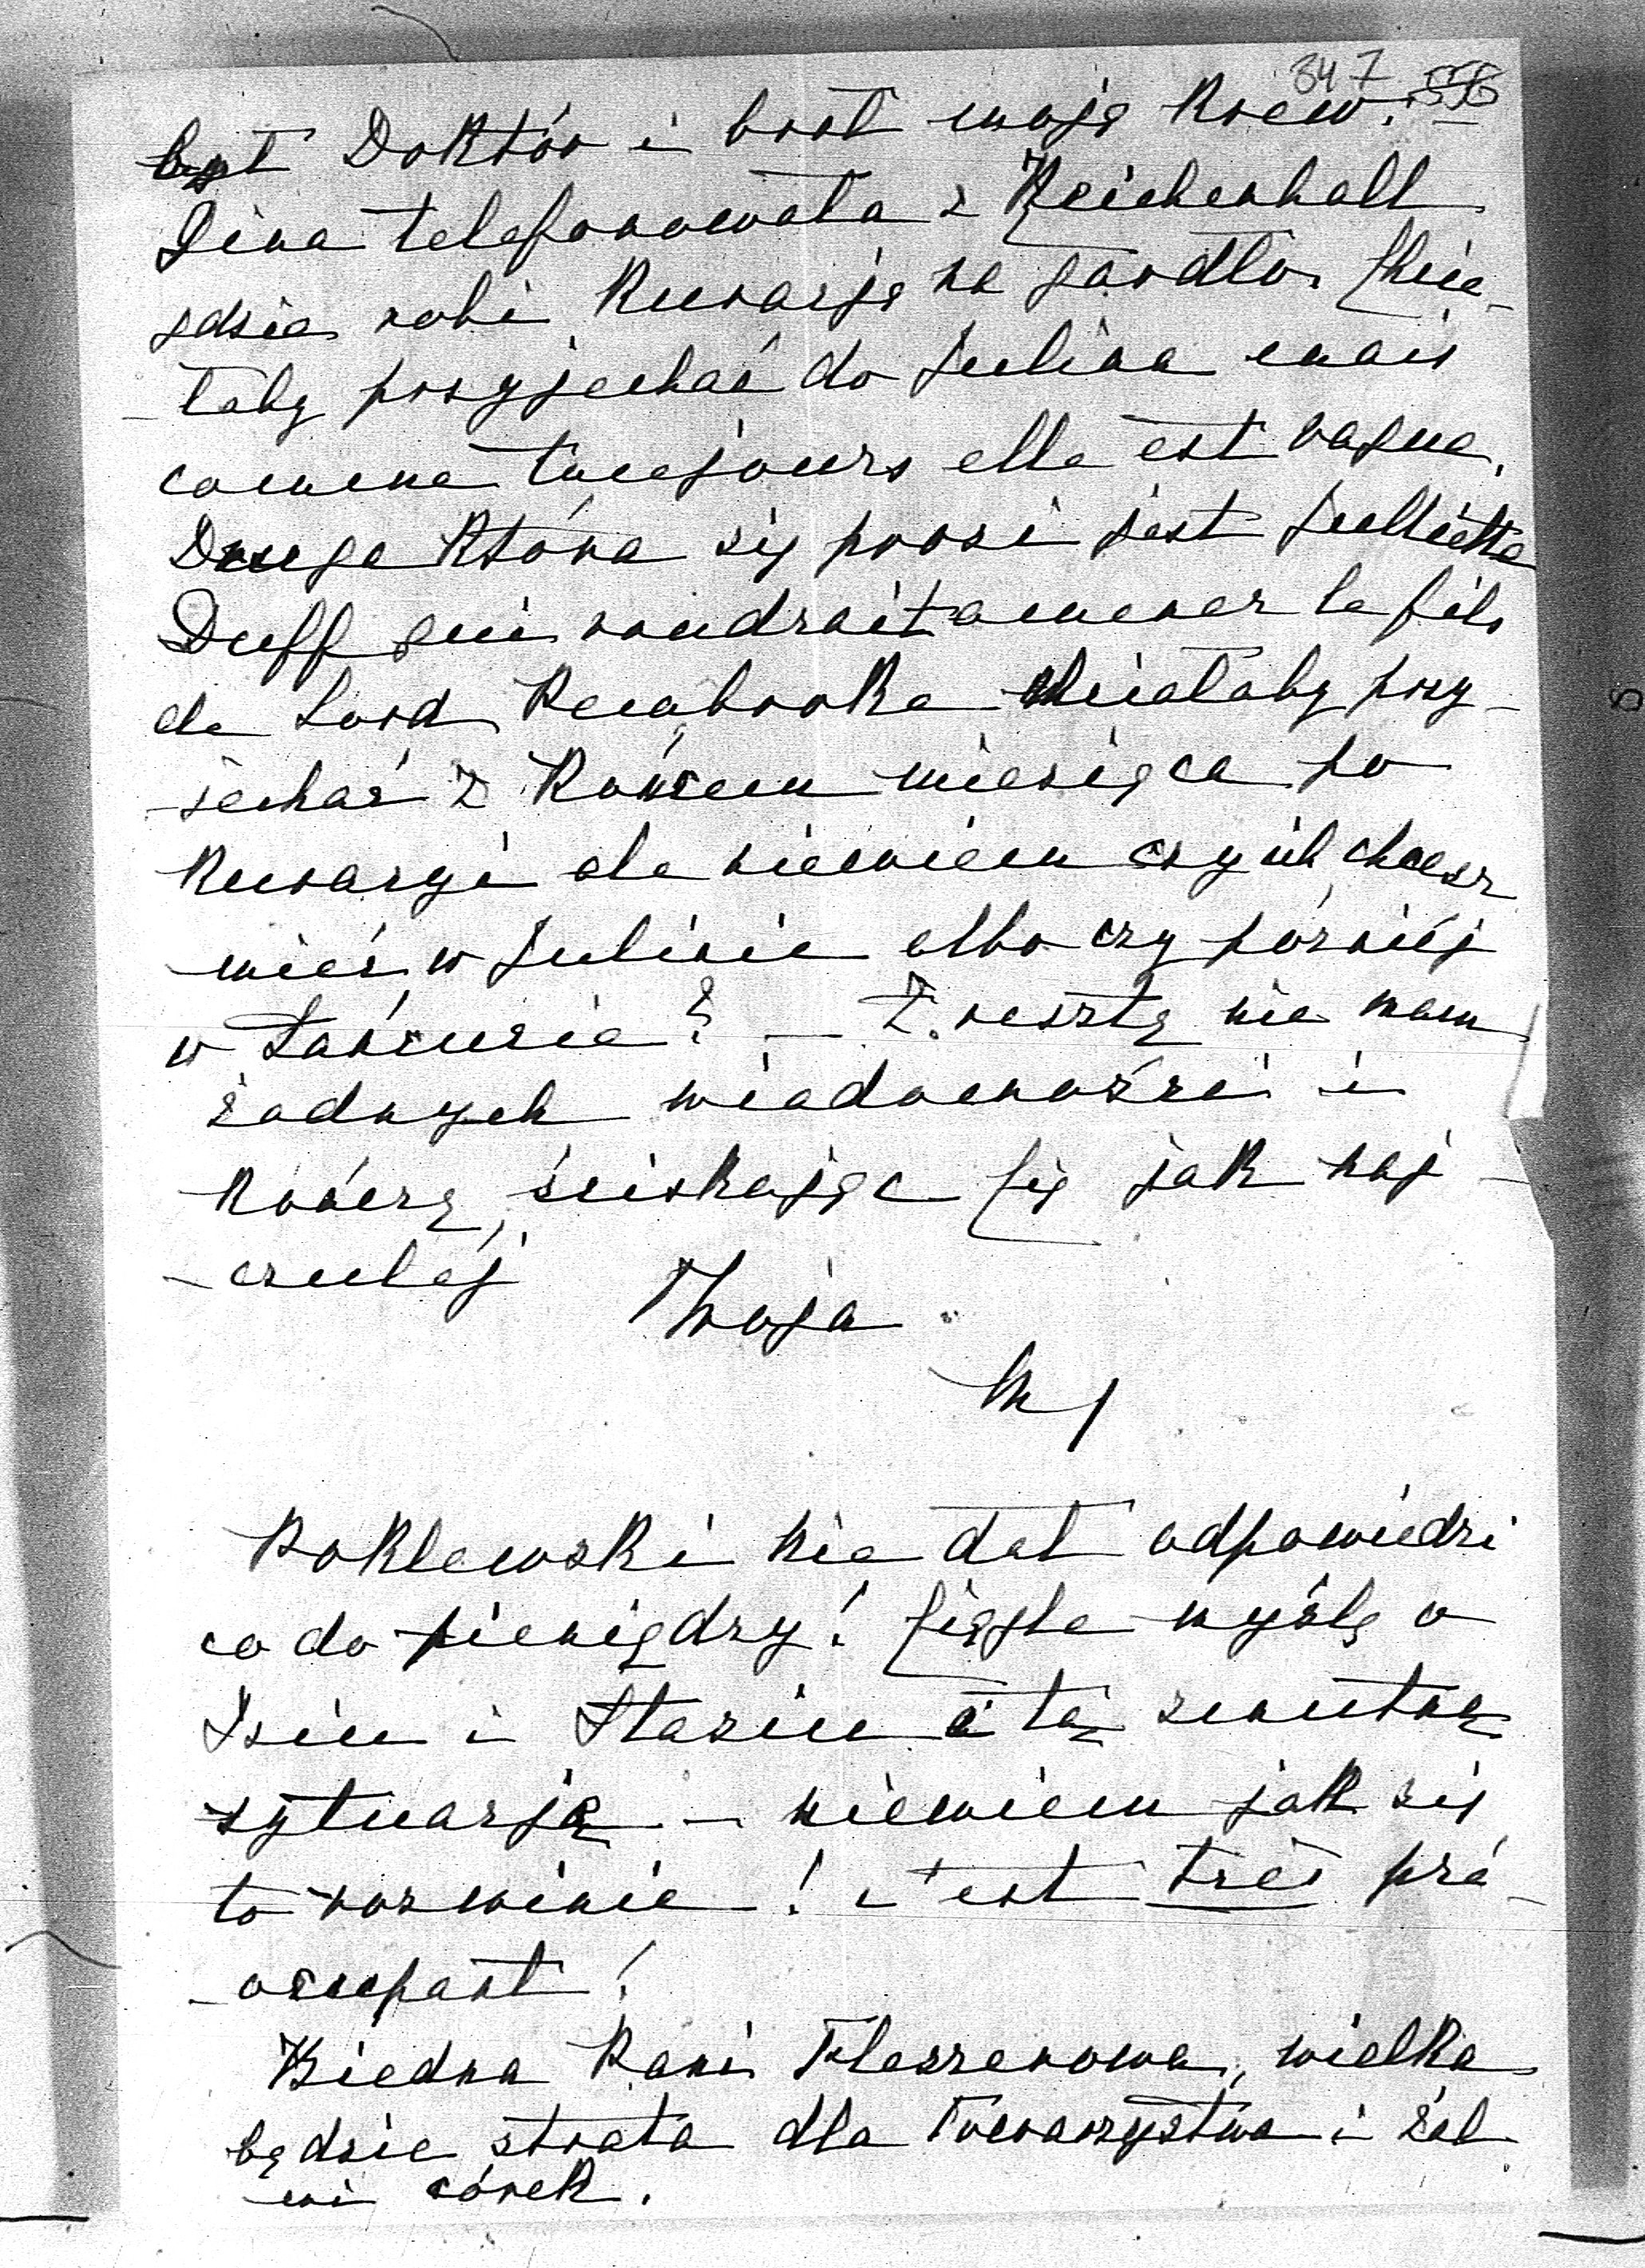 347 556
był Doktór i brał moję krew. –
Dina telefonowała z Reichenhall
gdzie robi kurację na gardło. Chcia-
-łaby przyjechać do Julina mais
comme toujours elle est vague.
Druga która się prosi jest Julliette
Duff qui voudrait amener le fils
de Lord Pembroke Chciałaby przy-
-jechać z końcem miesiąca po
kuracyi ale niewiem czy ich chcesz
mieć w Julinie albo czy później
w Łańcucie? — Z resztą nie mam
żadnych wiadomości i
kończę, ściskając Cię jak naj-
-czulej
Twoja
M
Poklewski nie dał odpowiedzi
co do pieniędzy! Ciągle myślę o
Isiu i Stasiu i tą smutną
sytuację – niewiem jak się
to rozwinie! c'est très pré-
-occupant!
Biedna Pani Fleszerowa, wielka
będzie strata dla Towarzystwa i żal
mi córek.